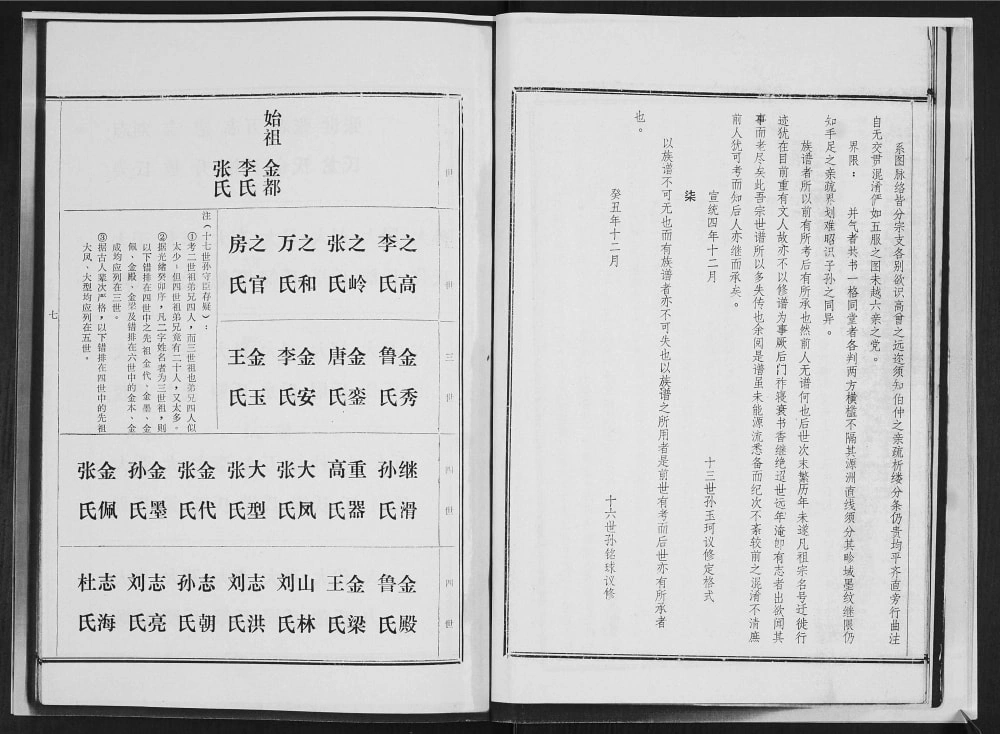 系图脉络皆分宗支各别欲识高曾之远迩须知伯仲之亲疏析缕分条仍贵均平齐直旁行曲注
自无交贯混淆俨如五服之图未越六亲之党。
界限： 并气者共书一格同堂者各判两方横槛不隔其源洲直线须分其畛域墨纹继限仍
知手足之亲疏界划难昭识子孙之同异。
族谱者所以前有所考后有所承也然前人无谱何也后世次末繁历年未遂凡祖宗名号迁徙行
迹犹在目前重有文人故亦不以修谱为事厥后门祚寝衰书香继绝迢世远年淹即有志者出欲闻其
事而老尽矣此吾宗世谱所以多失传也余阅是谱虽未能源流悉备而纪次不紊较前之混淆不清庶
前人犹可考而知后人亦继而承矣。
宣统四年十二月 十三世孙玉珂议修定格式
柒
以族谱不可无也而有族谱者亦不可失也以族谱之所用者是前世有考而后世亦有所承者
也。
癸丑年十二月 十六世孙铭球议修
世
始祖
金都
李氏
张氏
世
之高
李氏
之岭
张氏
之和
万氏
之官
房氏
三世
金秀
鲁氏
金銮
唐氏
金安
李氏
金玉
王氏
注（十七世孙守臣存疑）：
①考二世祖弟兄四人，而三世祖也弟兄四人似
太少，但四世祖弟兄竟有二十人，又太多。
②据光绪癸卯序，凡二字姓名者为三世祖，则
以下错排在四世中之先祖金代、金墨、金
佩、金殿、金梁及错排在六世中的金本、金
成均应列在三世。
③据古人辈次严格，以下错排在四世中的先祖
大凤、大型均应列在五世。
四世
继滑
孙氏
重器
高氏
大凤
张氏
大型
张氏
金代
张氏
金墨
孙氏
金佩
张氏
四世
金殿
鲁氏
金梁
王氏
山林
刘氏
志洪
刘氏
志朝
孙氏
志亮
刘氏
志海
杜氏
七